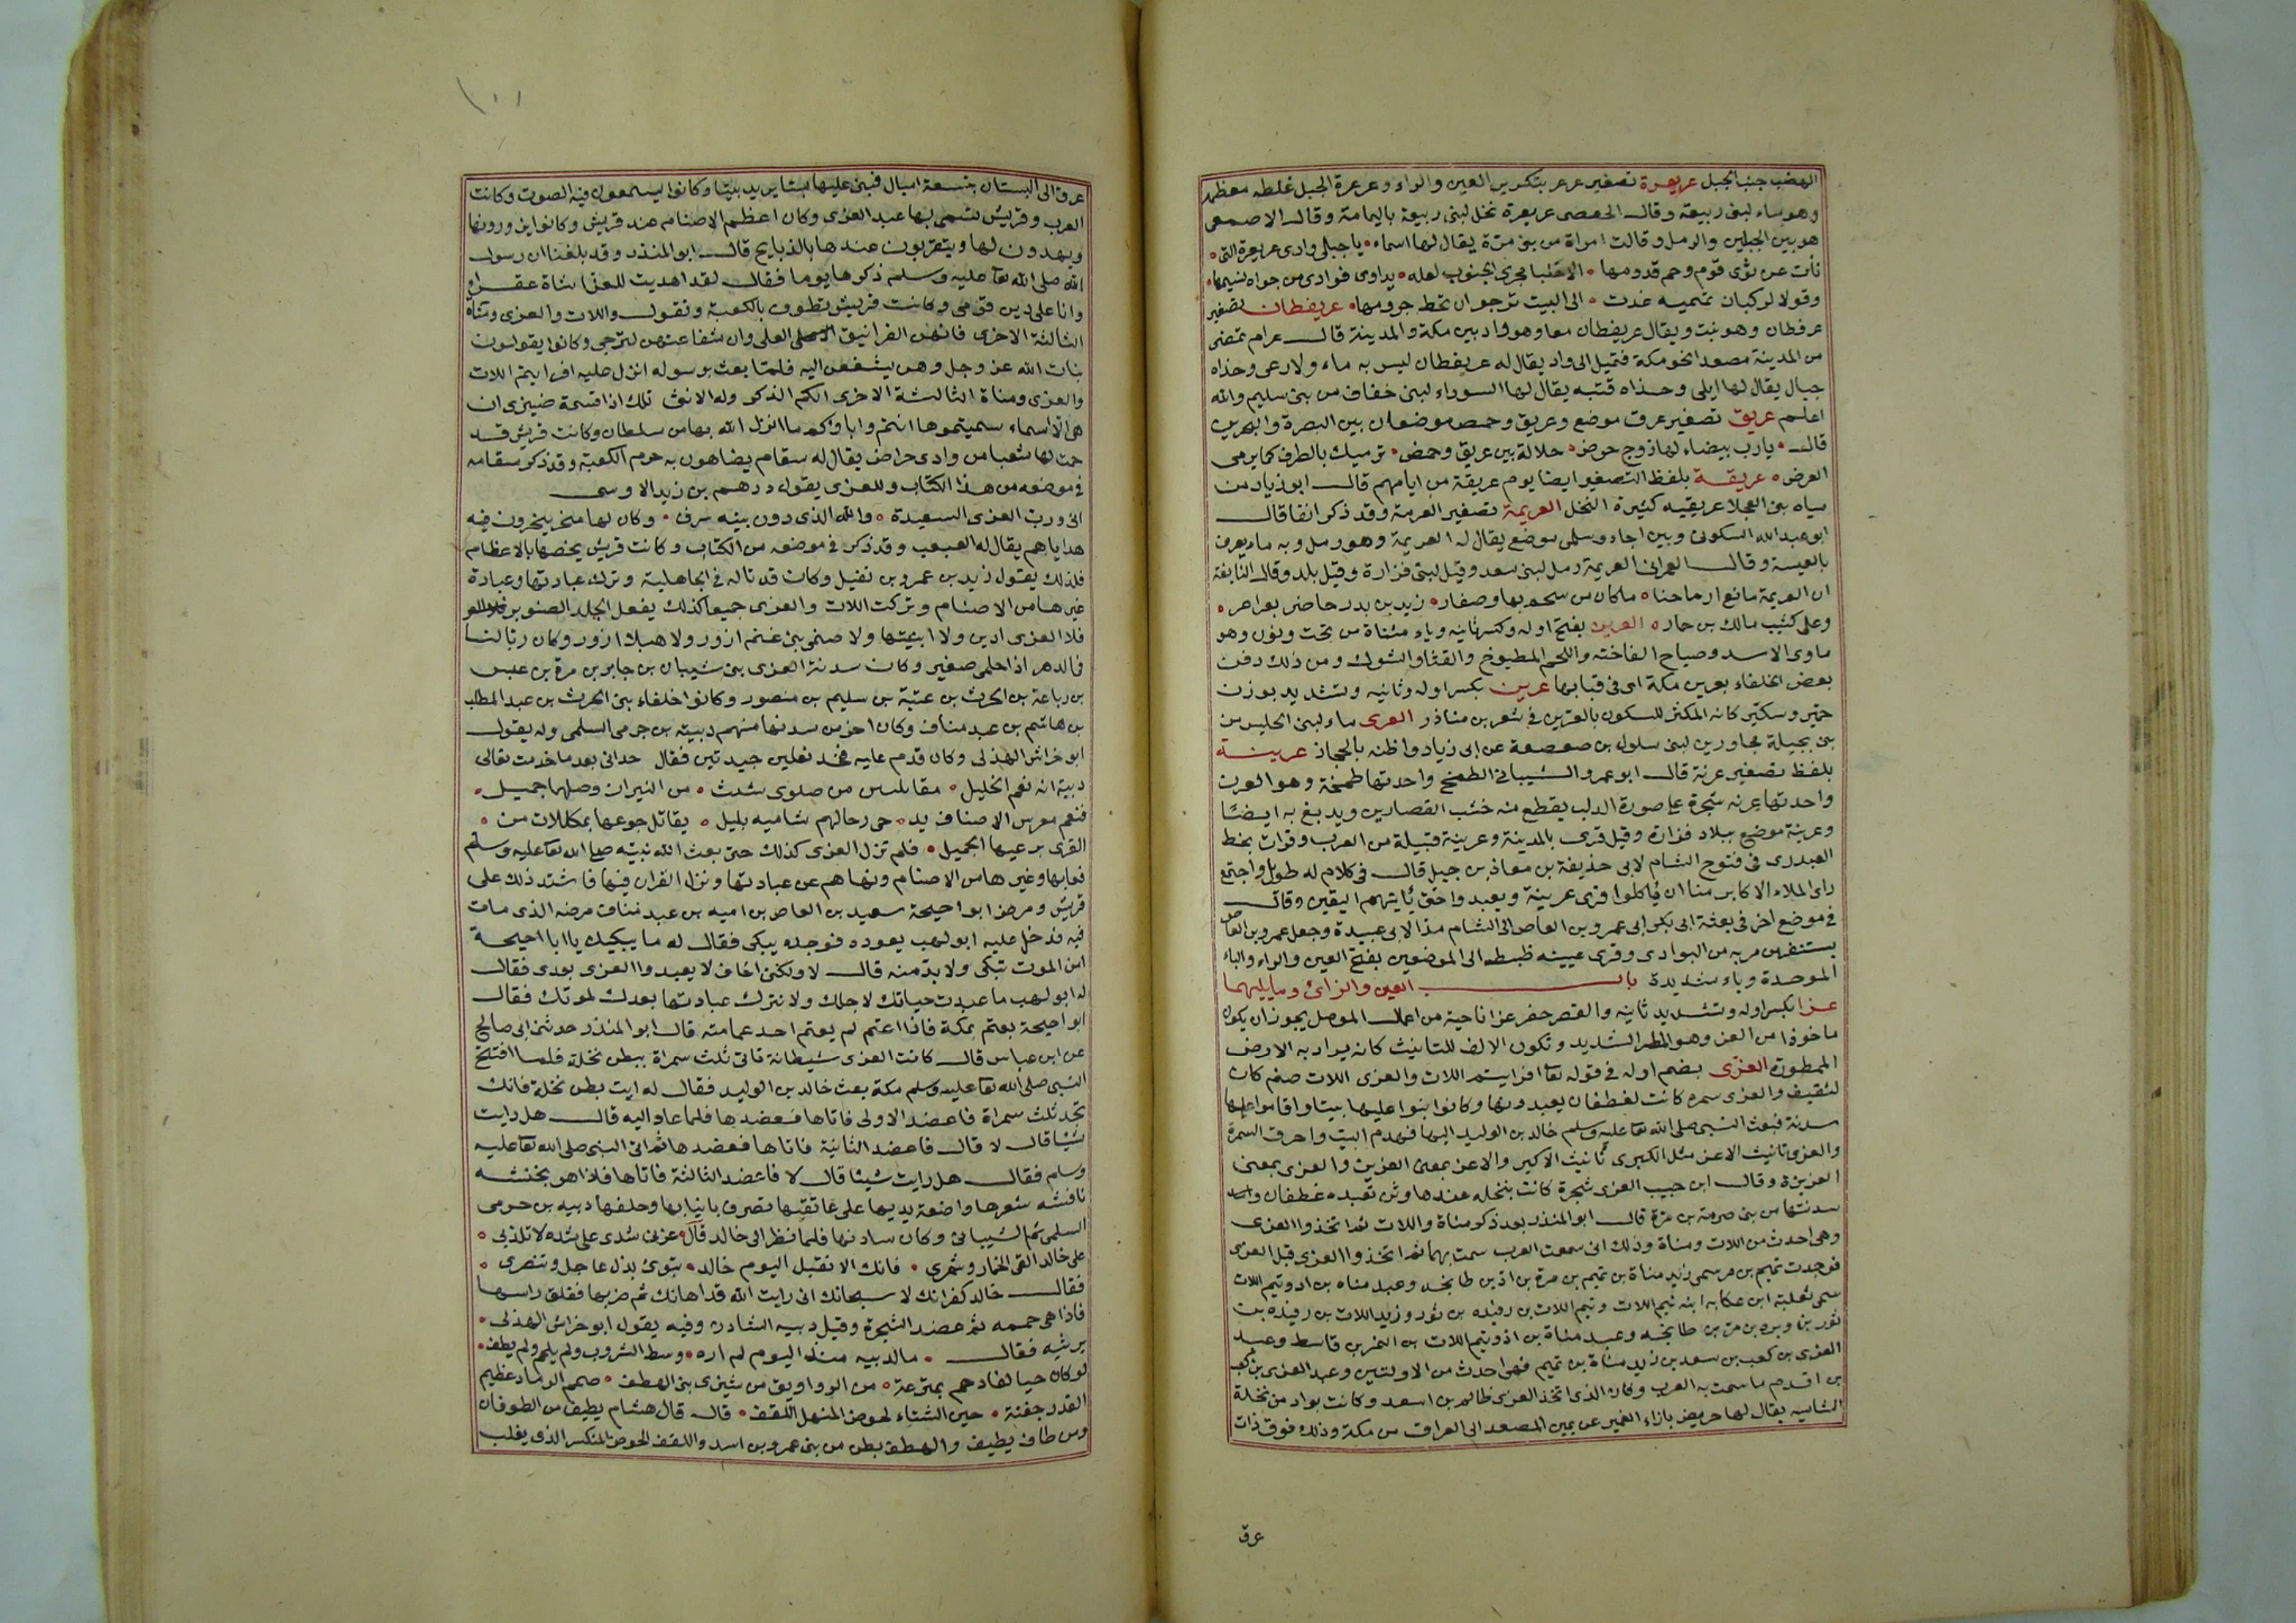 الهضب جنب الجبل عريعرة تصغير عرعر بتكرير العين والراء وعرعرة الجبل غلطه معظمه
وهو ماء لبنى ربيعة وقال الحفصى عريعرة نخل لبنى ربيعة باليمامة وقال الاصمعى
هو بين الجبلين والرمل وقالت امراة من بنى مرة يقال لها اسماء • ياجبلى وادى عريعرة التى •
نأت عن ثوى قوم وحم قدومها • الاخليا مجرى الجنوب لعله • يداوى فوادى من جواه نسيمها •
وقولا لركبان تميميه غدت • الى البيت ترجوان تحط جرومها • عريفطان تصغير
عرفطان وهو نبت ويقال عريفطان معا وهو واد بين مكة والمدينة قال عرام تمضى
من المدينة مصعدا نحو مكة فتميل الى واد يقال له عريفطان ليس به ماء ولا رعى وحذاه
جبال يقال لها ابلى وحذاه قنته يقال لها السوراء لبنى خفاف من بنى سليم والله
اعلم عريق تصغير عرق موضع وعريق وحمض موضعان بين البصرة والبحرين
قال • يارب بيضاء لها زوج حرض • حلالة بين عريق وحمض • ترميك بالطرف كما يرمى
الغرض • عريقة بلفظ التصغير ايضا يوم عريقة من ايامهم قال ابو زياد من
مياه بنى العجلا عريقيه كثيرة النخل العريمة تصغير العرمة وقد ذكر انفا قال
ابو عبد الله السكونى وبين اجاء وسلمى موضع يقال له العريمة وهو رمل وبه ماء يعرف
بالعبسة وقال العمرانى العريمة رمل لبنى سعد وقيل لبنى فزارة وقيل بلد وقال النابغة
ان العريمة مانع ارماحنا • ماكان من سحم بها وصفار • زيد بن بدر حاضر بعراعر •
وعلى كثيب مالك بن حمار • العرين بفتح اوله وكسر ثانيه وياء مثناة من تحت ونون وهو
ماوى الاسد وصياح الفاخته واللحم المطبوخ والقثاء والشوك ومن ذلك دفن
بعض الخلفاء بعرين مكة اى فى قبابها عرين بكسر اوله وثانيه وتشديد بوزن
خمير وسكير كانه المكثر للسكون بالعرين فى شعر بن مناذر العرى ماء لبنى الحليس من
بنى بجيلة مجاورين لبنى سلول بن صعصعة عن ابى زياد واظنه بالحجاز عرينة
بلفظ تصغير عرنة قال ابو عمرو الشيبانى الطمخ واحدتها طمخة وهو العرن
واحدتها عرنه شجرة على صورة الدلب يقطع منه خشب القصارين ويدبغ به ايضا
وعرينة موضع ببلاد فزارة وقيل قرى بالمدينة وعرينة قبيلة من العرب وقرات بخط
العبدرى فى فتوح الشام لابى حذيفة بن معاذ بن جبل قال فى كلام له طويل واجتمع
راى الملاء الاكابر منا ان ياكلوا قرى عرينة ويعبد واحتى ياتيهم اليقين وقال
فى موضع اخر فى بعثة ابى بكر الى عمرو بن العاص الى الشام مدا لابى عبيدة وجعل عمرو بن العاص
يستنفر من مر به من البوادى وقرى عربيه ضبطه الى الموضعين بفتح العين والراء والباء
الموحدة وياء شديدة باب العين والزاى وما يليهما
عزا بكسر اوله وتشديد ثانيه والقصر حفر عزا ناحية من اعمال الموصل يجوز ان يكون
ماخوذا من العز وهو المطر الشديد وتكون الالف للتانيث كانه يراد به الارض
الممطورة العزى بضم اوله فى قوله تعا افرايتم اللات والعزى اللات صنم كان
لثقيف والعزى سمره كانت لغطفان يعبدونها وكانوا بنوا عليها بيتا واقاموا عليها
سدنة فبعث النبى صلى الله تعا عليه وسلم خالد بن الوليد اليها فهدم البيت واحرق السمرة
والعزى تانيث الاعز مثل الكبرى تانيث الاكبر والاعز بمعنى العزيز والعزى بمعنى
العزيزة وقال ابن حبيب العزى شجرة كانت بنخله عندها وثن تعبده غطفان
سدنتها من بنى صرمة بن مرة قال ابو المنذر بعد ذكر مناة واللات ثم اتخذوا العزى
وهى احدث من اللات ومناة وذلك انى سمعت العرب سمت بهما ثم اتخذوا العزى قبل العزى
فوجدت تميم بن مر سمى زيد مناة بن تميم بن مرة بن اد بن طابخه وعبد مناه بن اد وتيم اللات
سمى ثعلبة ابن عكابه ابنه تيم اللات وتيم اللات بن رفيده بن ثور وزيد اللات بن رفيده بن
ثور بن وبره بن مر بن طابخه وعبد مناة بن اد وتيم اللات بن النمر بن قاسط وعبد
العزى بن كعب بن سعد بن زيد مناة بن تميم فهى احدث من الاولتين وعبد العزى بن كعب
من اقدم ما سمت به العرب وكان الذى اتخذ العزى ظالم بن اسعد وكانت بواد من نخلة
الشاميه يقال لها حريض بازاء الغمير عن يمين المصعد الى العراق من مكة وذلك فوق ذات
عرق
١٠١
عرق الى البستان بتسعة اميال فبنى عليها بسا يريد بيتا وكانوا يسمعون فيه الصوت وكانت
العرب وقريش تسمى بها عبد العزى وكان اعظم الاصنام عند قريش وكانوا يزورونها
ويهدون لها ويتقربون عندها بالذبايح قال ابو المنذر وقد بلغنا ان رسول
الله صلى الله تعا عليه وسلم ذكرها يوما فقال لقد اهديت للعزى شاة عفراء
وانا على دين قومى وكانت قريش تطوف بالكعبة وتقول واللات والعزى ومناة
الثالثة الاخرى فانهن الغرانيق العلى وان شفاعتهن لترجى وكانوا يقولون
بنات الله عز وجل وهن يشفعن اليه فلما بعث رسوله انزل عليه افرايتم اللات
والعزى ومناة الثالثة الاخرى الكم الذكر وله الانثى تلك اذا قسمة ضيزى ان
هى الا اسماء سميتموها انتم واباوكم ما انزل الله بها من سلطان وكانت قريش قد
حمت لها شعبا من وادى حراض يقال له سقام يضاهون به حرم الكعبة وقد ذكر سقامه
فى موضعه من هذا الكتاب وللعزى يقول درهم بن زيد الاوسى
انى ورب العزى السعيدة • والله الذى دون بيته سرف • وكان لها منحر ينحرون فيه
هداياهم يقال له العبعب وقد ذكر فى موضعه من الكتاب وكانت قريش يخصها بالاعظام
فلذلك يقول زيد بن عمرو بن نفيل وكان قد تاله فى الجاهلية وترك عبادتها وعبادة
غيرها من الاصنام وتركت اللات والعزى جميعا كذلك يفعل الجلد الصبور
فلا العزى ادين ولا ابنيتها ولا صنمى بنى غنم ازور ولا هبلا ازور وكان ربا لنا
فالدهر اذ احلمى صغير وكان سدنة العزى بنى شيبان بن جابر بن مرة بن عبس
بن رباعة بن الحرث بن عتبة بن سليم بن منصور وكانوا خلفاء بنى الحرث بن عبد المطلب
بن هاشم بن عبد مناف وكان اخر من سدنها منهم دبية بن حرمى السلمى وله يقول
ابو خراش الهذلى وكان قدم عليه فحذ نعلين جيدتين فقال حذانى بعد ما خدمت نعالى
دبية انه نعم الخليل • مقابلتين من صلوى مشب • من الثيران وصلهما جميل •
فنعم معرس الاضياف يد • حى رحالهم شاميه بليل • يقاتل جوعها بمكللات من •
القرى يرعبها الجميل • فلم تزل العزى كذلك حتى بعث الله نبيه صلى الله تعا عليه وسلم
فعابها وغيرها من الاصنام ونهاهم عن عبادتها ونزل القران فيها فاشتد ذلك على
قريش ومرض ابو احيحة سعيد بن العاص بن اميه بن عبد مناف مرضه الذى مات
فيه فدخل عليه ابو لهب يعوده فوجده يبكى فقال له ما يبكيك يا ابا احيحة
امن الموت تبكى ولابد منه قال لا ولكنى اخاف لا يعبدوا العزى بعدى فقال
له ابو لهب ما عبدت حياتك لاجلك ولا نترك عبادتها بعدك لموتك فقال
ابو احيحة بعتم بمكة فاذا اعتم لم يعتم احد عمامته قال ابو المنذر حدثنى ابى صالح
عن ابن عباس قال كانت العزى شيطانة تاتى ثلث سمراة ببطن نخلة فلما افتتح
النبى صلى الله تعا عليه وسلم مكة بعث خالد بن الوليد فقال له ايت بطن نخلة فانك
تجد ثلث سمراة فاعضد الاولى فاتاها فعضدها فلما عاد اليه قال هل رايت
شيئا قال لا قال فاعضد الثانية فاتاها فعضدها ثم اتى النبى صلى الله تعا عليه
وسلم فقال هل رايت شيئا قال لا فاعضد الثالثة فاتاها فاذا هو بخنثه
نافشه شعرها واضعة يديها على عاتقيها تصرف بانيابها وخلفها دبيه بن حرمى
السلمى ثم الشيبانى وكان سادنها فلما نظر الى خالد قال • عزى شدى على شده لا تكذبى •
على خالد القى الخمار وشمرى • فانك الا تقتل اليوم خالد • تبوى بذل عاجل وتنصرى •
فقال خالد كفرانك لا سبحانك انى رايت الله قد اهانك ثم ضربها ففلق راسها
فاذا هى حممه ثم عضد الشجرة وقتل دبيه السادن وفيه يقول ابو خراش الهذلى •
يرثيه فقال • مالدبيه منذ اليوم لم اره • وسط الشروب ولم يلمم ولم يطف •
لو كان حيا لغاداهم بمترعة • من الرواويق من شيزى بنى الهطف • ضخم الرماد عظيم
القدر جفنة • حين الشتاء لحوض المنهل اللقف • قال قال هشام يطيف من الطوفان
ومن طاف يطيف والهطف بطن من بنى عمرو بن اسد واللقف الحوض المنكسر الذى يغلب